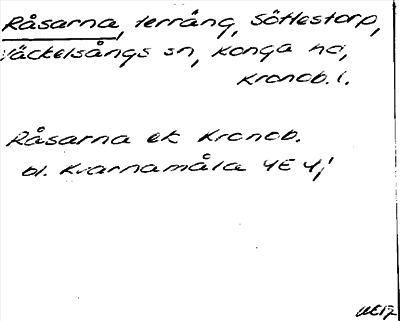 Råsarna, terräng, Söttestorp,
Väckelsångs sn, Konga hd,
Kronob. l.
Råsarna ek Kronob.
bl. Kvarnamåla 4E 4i